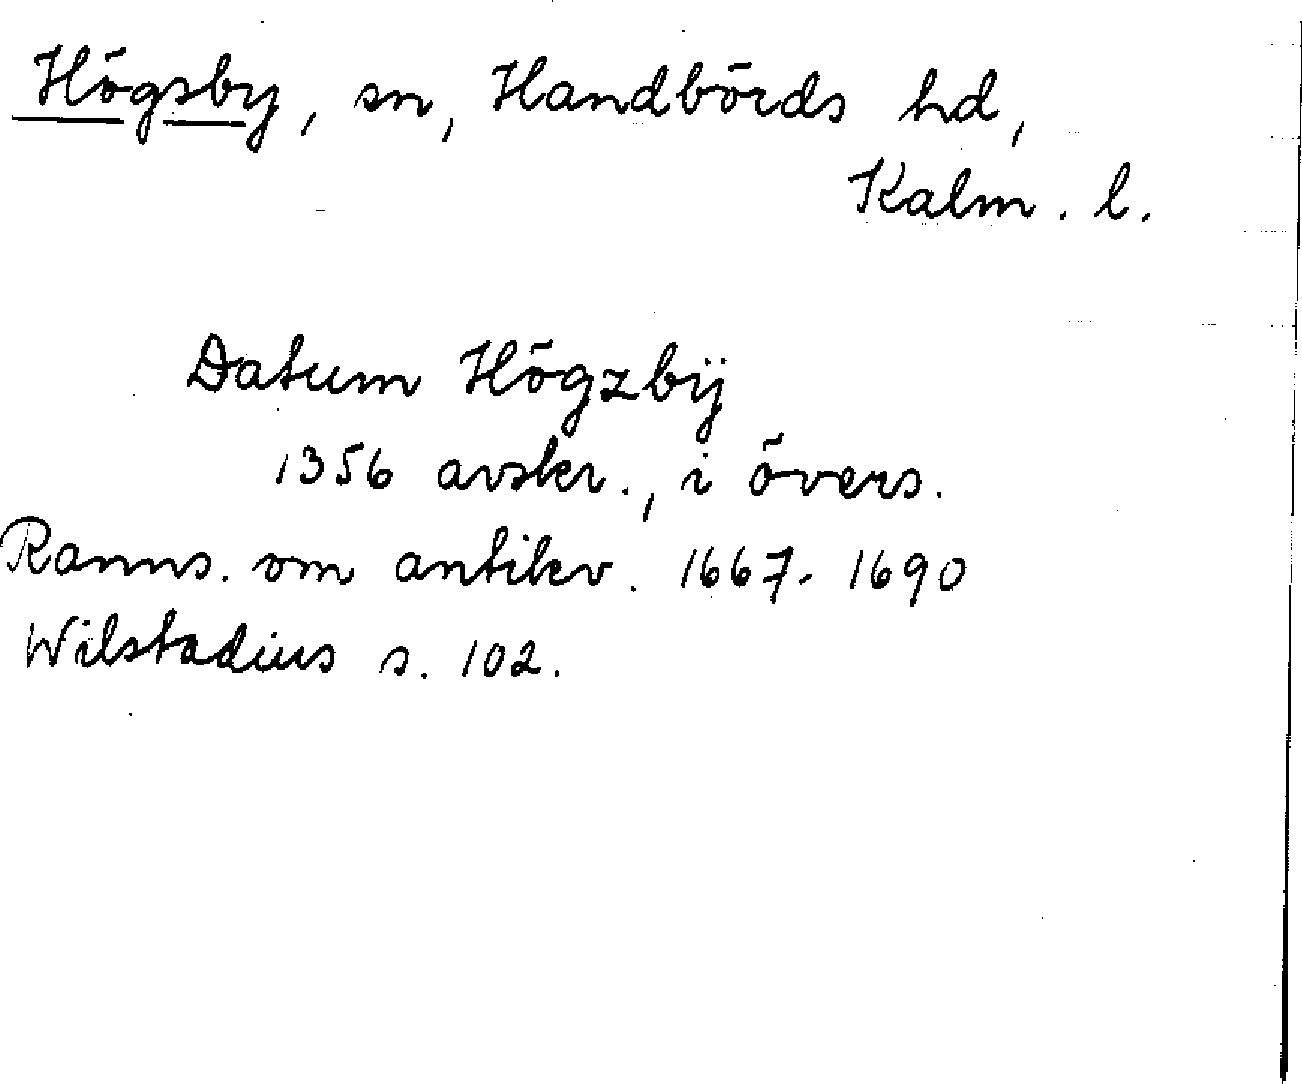 Högsby, sn, Handbörds hd,
Kalm. l.
Datum Högzbÿ
1356 avskr., i övers.
Ranns. om antikv. 1667-1690
Wilstadius s. 102.